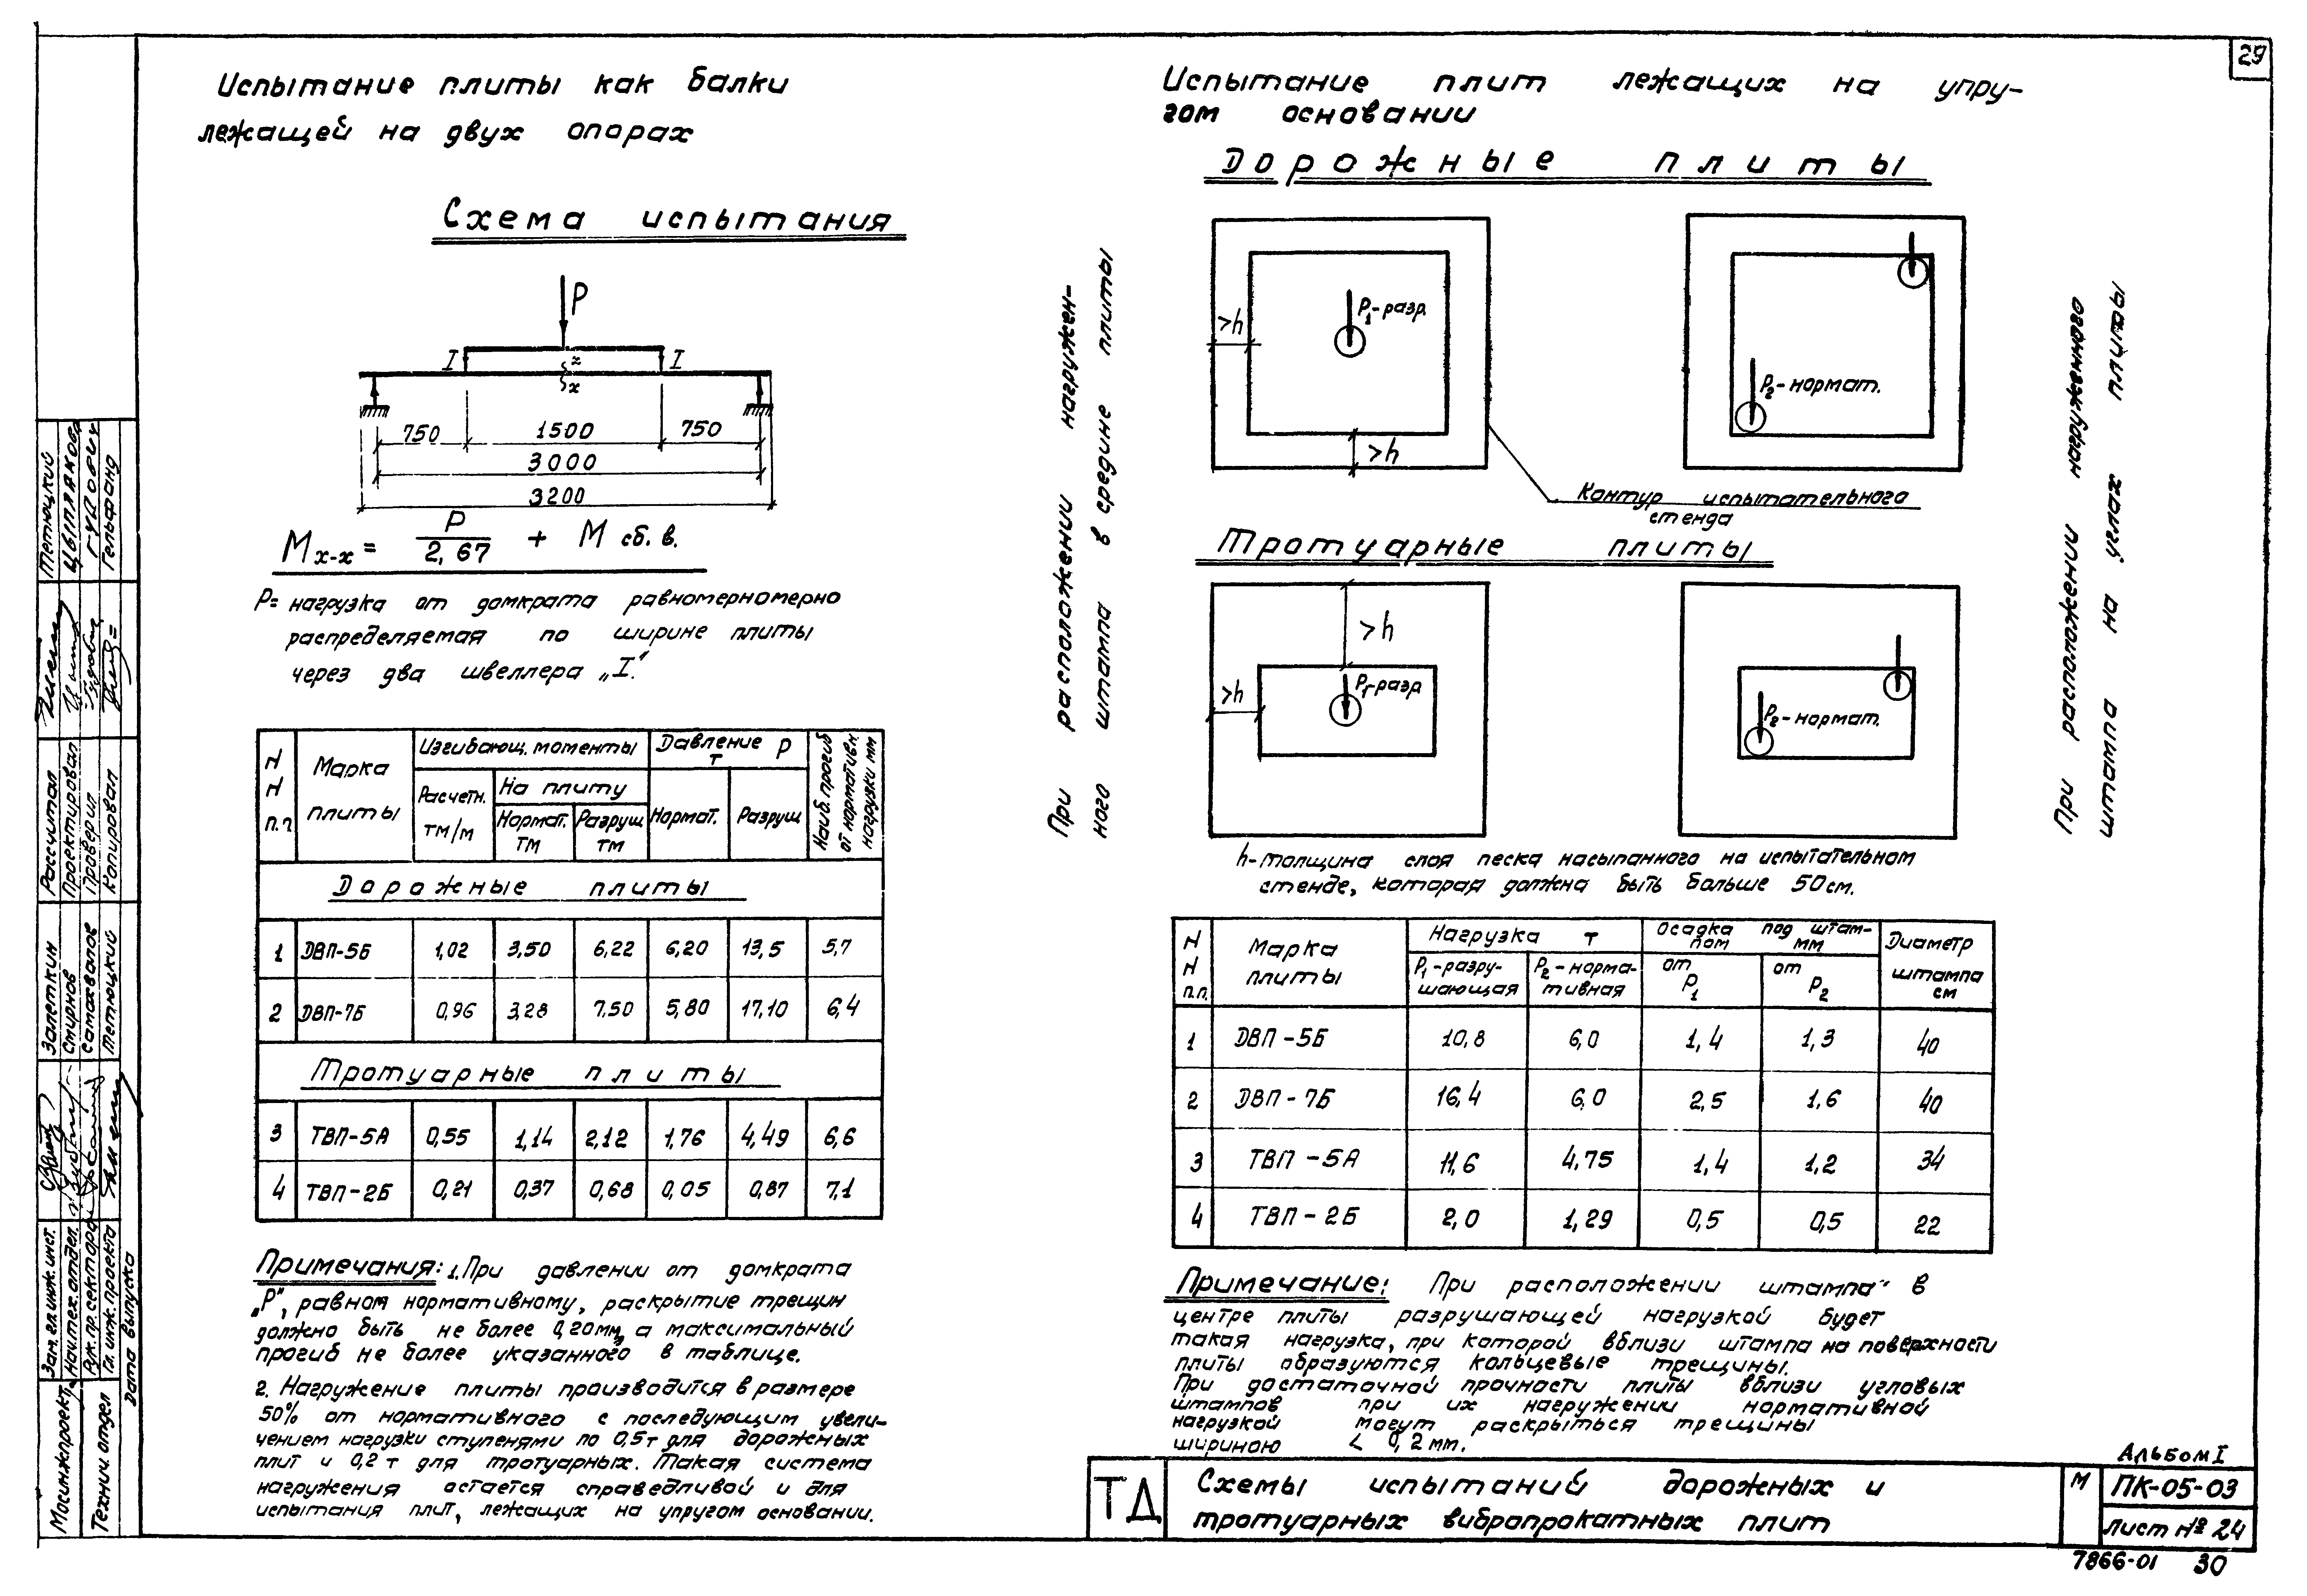 29
Испытание плиты как балки
лежащей на двух опорах
Схема испытания
P
I I
x
x
750 1500 750
3000
3200
Mх-х = P / 2,67 + M сб. в.
P= нагрузка от домкрата равномерномерно
распределяемая по ширине плиты
через два швеллера „I“.
N N п.п Марка плиты Изгибающ. моменты Давление P т Наиб. прогиб от нормативн. нагрузки мм
Расчетн. тм/м На плиту Нормат. Разруш
Нормат. тм Разруш тм
Дорожные плиты
1 ДВП-5Б 1,02 3,50 6,22 6,20 13,5 5,7
2 ДВП-7Б 0,96 3,28 7,50 5,80 17,10 6,4
Тротуарные плиты
3 ТВП-5А 0,55 1,14 2,12 1,76 4,49 6,6
4 ТВП-2Б 0,21 0,37 0,68 0,05 0,87 7,1
Примечания: 1. При давлении от домкрата
„P“, равном нормативному, раскрытие трещин
должно быть не более 0,20мм, а максимальный
прогиб не более указанного в таблице.
2. Нагружение плиты производится в размере
50% от нормативного с последующим увели-
чением нагрузки ступенями по 0,5т для дорожных
плит и 0,2 т для тротуарных. Такая система
нагружения остается справедливой и для
испытания плит, лежащих на упругом основании.
Испытание плит лежащих на упру-
гом основании
Дорожные плиты
При расположении нагружен-
ного штампа в средине плиты
>h
P1-разр.
>h
P2-нормат.
Контур испытательного
стенда
При расположении нагруженного
штампа на углах плиты
Тротуарные плиты
>h
>h
P1-разр
P2-нормат.
h-толщина слоя песка насыпанного на испытательном
стенде, которая должна быть больше 50см.
N N п.п. Марка плиты Нагрузка т Осадка под штам-пом мм Диаметр штампа см
P1-разру-шающая P2-норма-тивная от P1 от P2
1 ДВП-5Б 10,8 6,0 1,4 1,3 40
2 ДВП-7Б 16,4 6,0 2,5 1,6 40
3 ТВП-5А 11,6 4,75 1,4 1,2 34
4 ТВП-2Б 2,0 1,29 0,5 0,5 22
Примечание: При расположении штампа" в
центре плиты разрушающей нагрузкой будет
такая нагрузка, при которой вблизи штампа на поверхности
плиты образуются кольцевые трещины.
При достаточной прочности плиты вблизи угловых
штампов при их нагружении нормативной
нагрузкой могут раскрыться трещины
шириною < 0,2мм.
Альбом I
ТД
Схемы испытаний дорожных и
тротуарных вибропрокатных плит
М
ПК-05-03
Лист № 24
7866-01 30
Мосинжпроект
Технич. отдел
Зам. гл. инж. инст. Залеткин
Нач. тех. отдел. Смирнов
Рук. пр. сектора Самохвалов
Гл. инж. проекта Тетюцкий
Дата выпуска
Рассчитал Тетюцкий
Проектировал Цыплякова
Проверил Гудович
Копировал Гельфанд